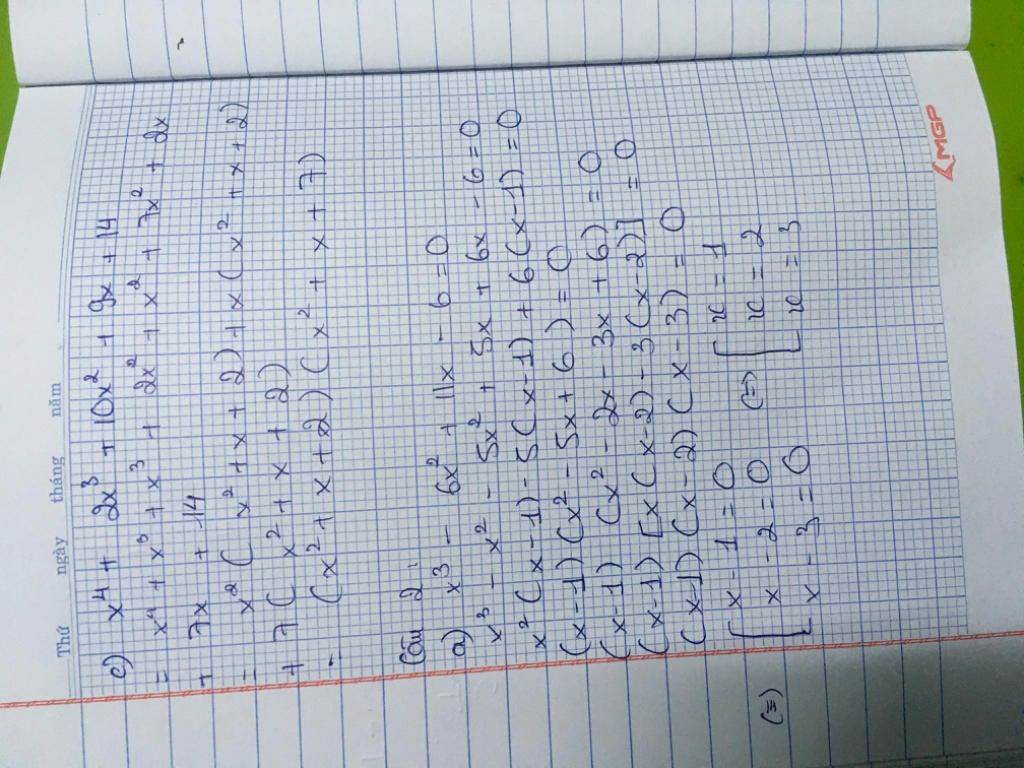 Thứ ngày tháng năm
c) x⁴ + 2x³ + 10x² + 9x + 14
= x⁴ + x³ + x³ + 2x² + x² + 7x² + 2x
+ 7x + 14
= x² (x² + x + 2) + x (x² + x + 2)
+ 7 (x² + x + 2)
= (x² + x + 2) (x² + x + 7)
Câu 2:
a) x³ - 6x² + 11x - 6 = 0
x³ - x² - 5x² + 5x + 6x - 6 = 0
x² (x - 1) - 5 (x - 1) + 6 (x - 1) = 0
(x - 1) (x² - 5x + 6) = 0
(x - 1) (x² - 2x - 3x + 6) = 0
(x - 1) [x (x - 2) - 3 (x - 2)] = 0
(x - 1) (x - 2) (x - 3) = 0
x - 1 = 0 x = 1
(=) x - 2 = 0 (=) x = 2
x - 3 = 0 x = 3
MGP